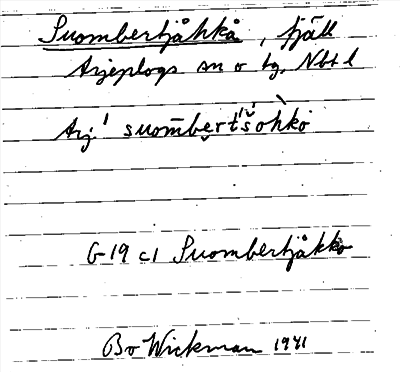 Suombertjåhkå, fjäll
Arjeplogs sn o tg, Nbt l
Arj. ˈsuom̄berˈt́š́ohkò
G-19 c1 Suombertjåkkå
Bo Wickman 1941